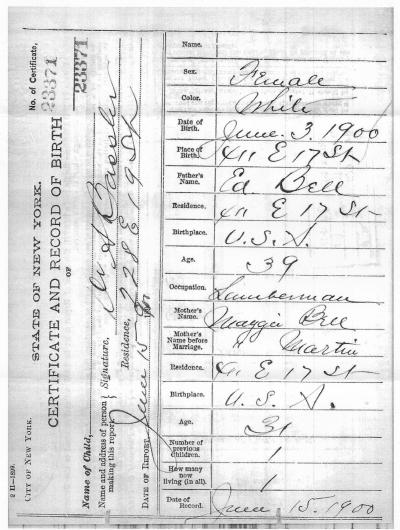 2 H—1899.
CITY OF NEW YORK.
STATE OF NEW YORK.
CERTIFICATE AND RECORD OF BIRTH
OF
No. of Certificate,
23371
23371
Name of Child,
Name and address of person making this report,
Signature,
Residence, 228 E 19 St
DATE OF REPORT, June 15 1900
Name.
Sex. Female
Color. White
Date of Birth. June. 3. 1900
Place of Birth. 411 E 17 St
Father's Name. Ed. Bell
Residence. 411 E 17 St
Birthplace. U.S.A.
Age. 39
Occupation. Lumberman
Mother's Name. Maggie Bell
Mother's Name before Marriage. " Martin
Residence. 411 E 17 St
Birthplace. U.S.A.
Age. 31
Number of previous Children. 1
How many now living (in all). 1
Date of Record. June 15. 1900